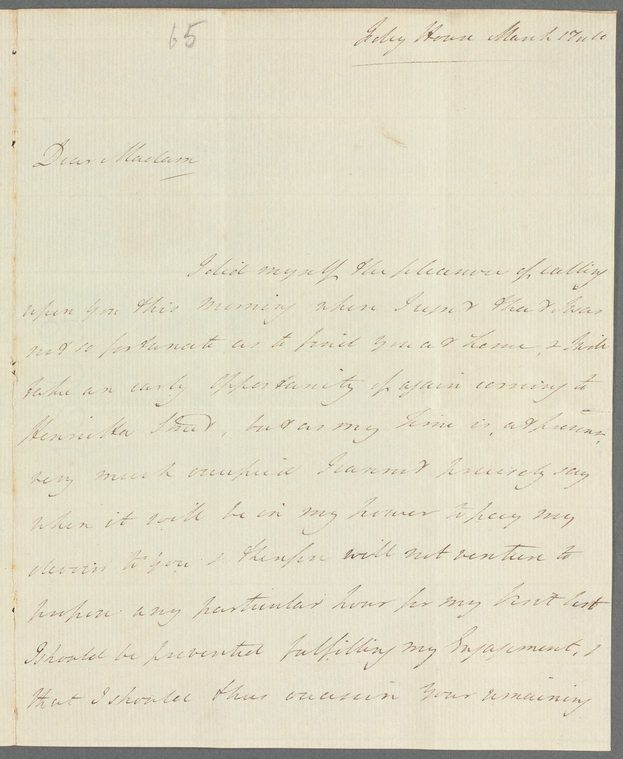 65
Foley House March 17
Dear Madam
I did myself the pleasure of calling
upon you this morning when I regret that I was
not so fortunate as to find you at Home, & I will
take an early opportunity of again coming to
Henrietta Street, but as my time is, at present,
very much occupied I cannot precisely say
when it will be in my power to pay my
devoirs to you & therefore will not venture to
propose any particular hour for my visit lest
I should be prevented fulfilling my Engagement, &
that I should thus occasion your remaining